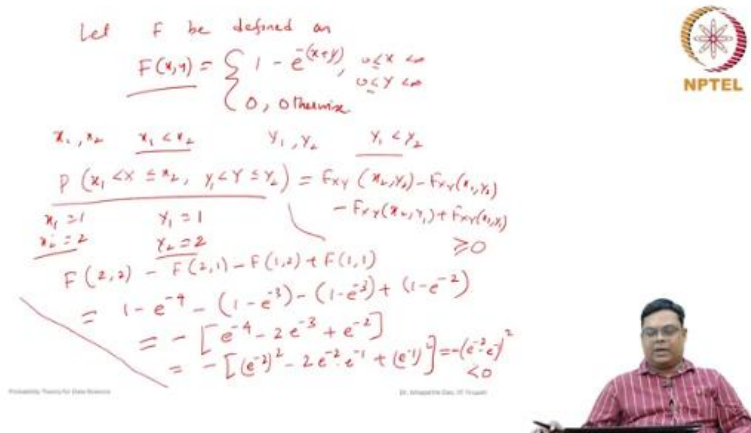 Let F be defined an
F(x,y) = { 1 - e^-(x+y), 0≤x<∞
0≤y<∞
0, otherwise
NPTEL
x₁,x₂ x₁<x₂ y₁,y₂ y₁<y₂
P(x₁<X≤x₂, y₁<Y≤y₂) = F_XY(x₂,y₂) - F_XY(x₁,y₂)
- F_XY(x₂,y₁) + F_XY(x₁,y₁)
≥0
x₁=1 y₁=1
x₂=2 y₂=2
F(2,2) - F(2,1) - F(1,2) + F(1,1)
= 1-e^-4 - (1-e^-3) - (1-e^-3) + (1-e^-2)
= -[e^-4 - 2e^-3 + e^-2]
= -[(e^-2)^2 - 2e^-2·e^-1 + (e^-1)^2] = -(e^-2-e^-1)^2
<0
Probability Theory for Data Science
IIT Tirupati